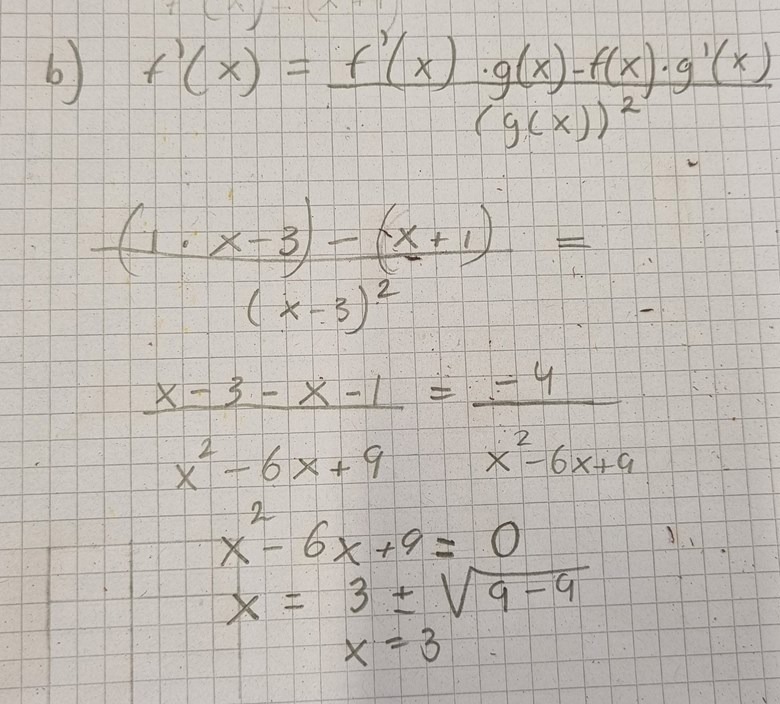 b) f'(x) = f'(x) · g(x) - f(x) · g'(x) / (g(x))²
(1 · x - 3) - (x + 1) / (x - 3)² =
x - 3 - x - 1 / x² - 6x + 9 = -4 / x² - 6x + 9
x² - 6x + 9 = 0
x = 3 ± √9 - 9
x = 3